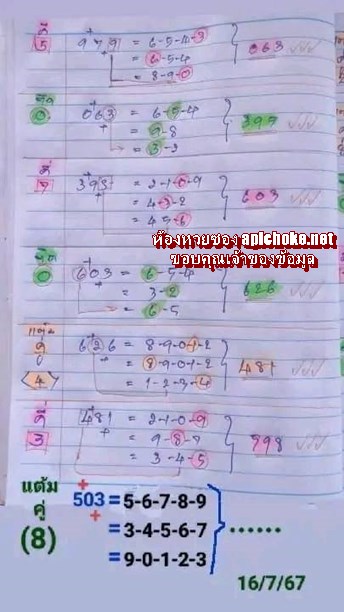 ที่
5
979 = 6-5-4-3
= 6-5-4
= 8-9-0
063
063 = 6-5-4
= 9-8
= 3-2
393 = 2-1-0-9
= 4-3-2
= 4-5-6
603
ห้องหวยซอง apichoke.net
ขอบคุณเจ้าของข้อมูล
603 = 6-5-4
= 3-2
= 6-5
626
626 = 8-9-0-1-2
= 8-9-0-1-2
= 1-2-3-4
481
4
ที่
3
481 = 2-1-0-9
= 9-8-7
= 3-4-5
598
แต้ม
คู่
(8)
503 = 5-6-7-8-9
= 3-4-5-6-7
= 9-0-1-2-3
......
16/7/67